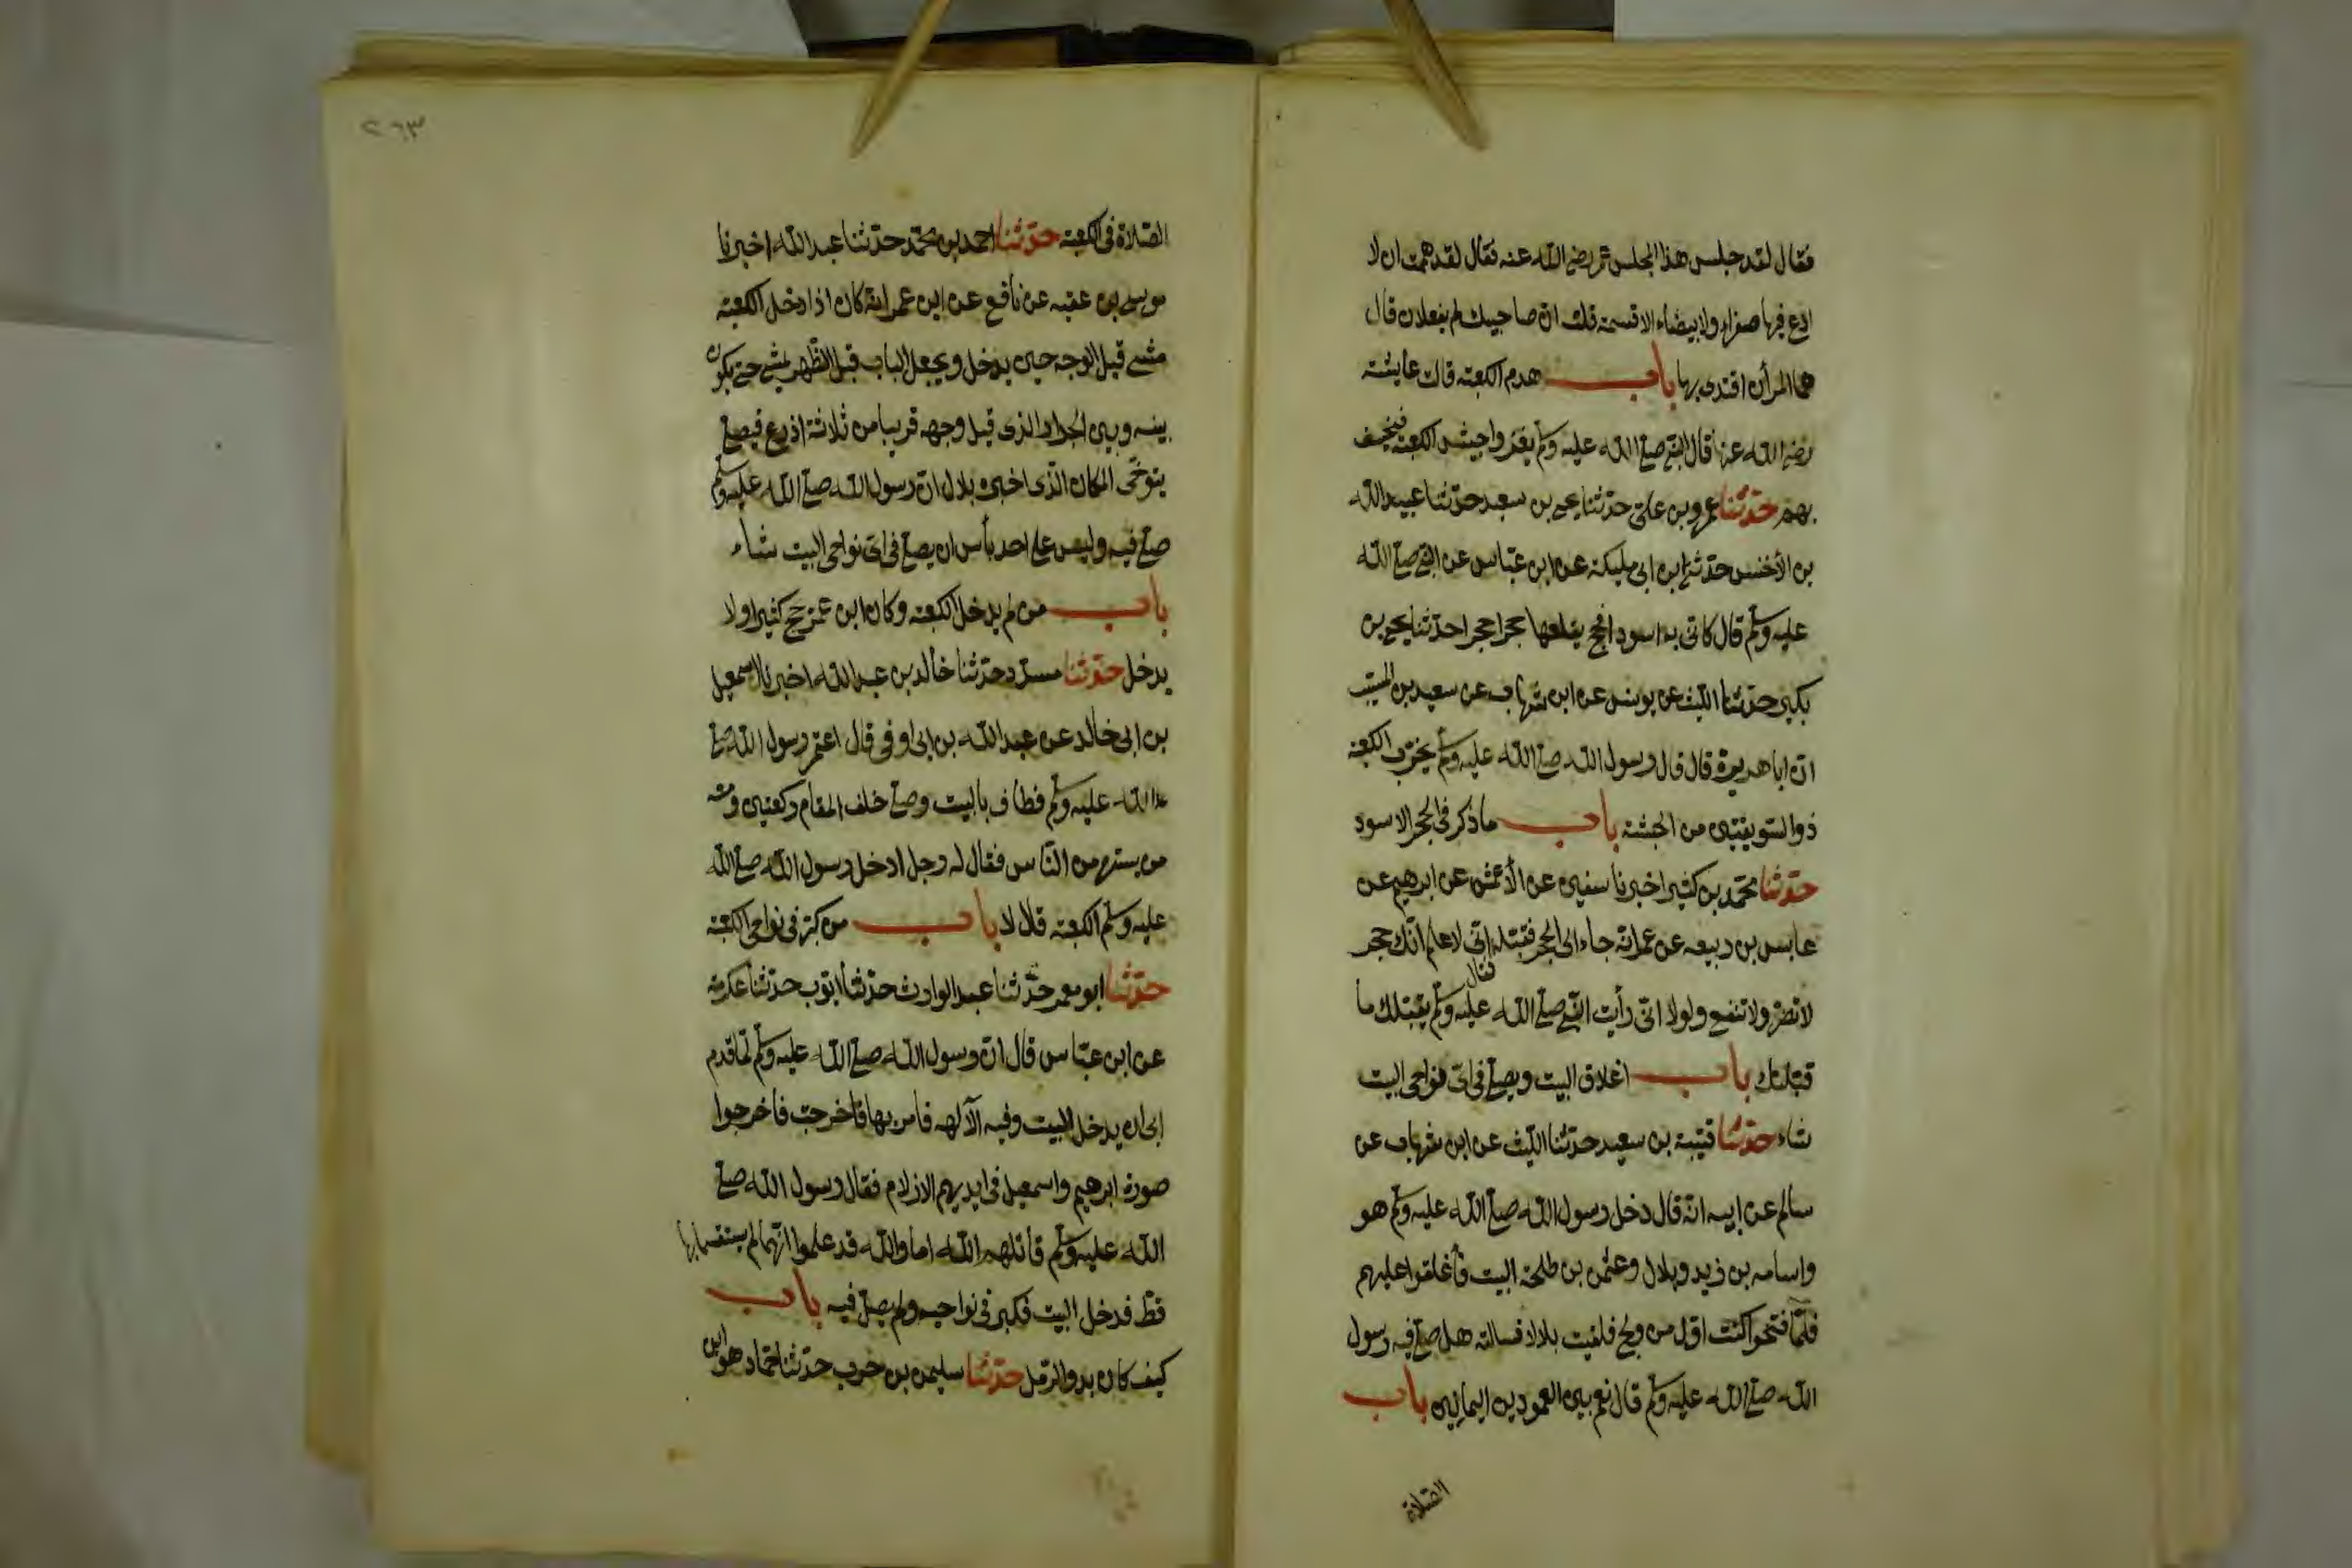 فقال لقد جلس هذا المجلس عمر رضى الله عنه فقال لقد هممت ان لا
ادع فيها صفراء ولا بيضاء الا قسمته قلت ان صاحبيك لم يفعلا ن قال
هما المرأن اقتدى بها باب هدم الكعبة قالت عايشة
رضى الله عنها قال النبى صلى الله عليه وسلم يغزوا جيش الكعبة فيخسف
بهم حدثنا عمرو بن على حدثنا يحيى بن سعيد حدثنا عبيد الله
بن الأخنس حدثنى ابن ابى مليكة عن ابن عباس عن النبى صلى الله
عليه وسلم قال كانى به اسود افحج يقلعها حجرا حجرا حدثنا يحيى بن
بكير حدثنا الليث عن يونس عن ابن شهاب عن سعيد بن المسيب
ان ابا هريرة قال قال رسول الله صلى الله عليه وسلم يخرب الكعبة
ذو السويقتين من الحبشة باب ما ذكر فى الحجر الاسود
حدثنا محمد بن كثير اخبرنا سفين عن الأعمش عن ابرهيم عن
عابس بن ربيعه عن عمر انه جاء الى الحجر فقبله فقال انى لاعلم انك حجر
لا تضر ولا تنفع ولولا انى رأيت النبى صلى الله عليه وسلم يقبلك ما
قبلتك باب اغلاق البيت ويصلى فى اى نواحى البيت
شاء حدثنا قتيبة بن سعيد حدثنا الليث عن ابن شهاب عن
سالم عن ابيه انه قال دخل رسول الله صلى الله عليه وسلم هو
واسامه بن زيد وبلال وعثمن بن طلحة البيت فأغلقوا عليهم
فلما فتحوا كنت اول من ولج فلقيت بلالا فسالته هل صلى فيه رسول
الله صلى الله عليه وسلم قال نعم بين العمودين اليمانيين باب
الصلاة
٢٦٣
الصلاة فى الكعبة حدثنا احمد بن محمد حدثنا عبد الله اخبرنا
موسى بن عقبه عن نافع عن ابن عمر انه كان اذا دخل الكعبة
مشى قبل الوجه حين يدخل ويجعل الباب قبل الظهر يمشى حتى يكون
بينه وبين الجدار الذى قبل وجهه قريبا من ثلاثة اذرع فيصلى
يتوخى المكان الذى اخبره بلال ان رسول الله صلى الله عليه وسلم
صلى فيه وليس على احد بأس ان يصلى فى اى نواحى البيت شاء
باب من لم يدخل الكعبة وكان ابن عمر يحج كثيرا ولا
يدخل حدثنا مسدد حدثنا خالد بن عبد الله اخبرنا اسمعيل
بن ابى خالد عن عبد الله بن ابى اوفى قال اعتمر رسول الله صلى
الله عليه وسلم فطاف بالبيت وصلى خلف المقام ركعتين ومعه
من يستره من الناس فقال له رجل ادخل رسول الله صلى الله
عليه وسلم الكعبة قال لا باب من كبر فى نواحى الكعبة
حدثنا ابو معمر حدثنا عبد الوارث حدثنا ايوب حدثنا عكرمة
عن ابن عباس قال ان رسول الله صلى الله عليه وسلم لما قدم
ابى ان يدخل البيت وفيه الآلهه فامر بها فاخرجت فاخرجوا
صورة ابرهيم واسمعيل فى ايديهم الازلام فقال رسول الله صلى
الله عليه وسلم قاتلهم الله اما والله قد علموا انهما لم يستقسما بها
قط فدخل البيت فكبر فى نواحيه ولم يصل فيه باب
كيف كان بدو الرمل حدثنا سليمن بن حرب حدثنا حماد هو ابن